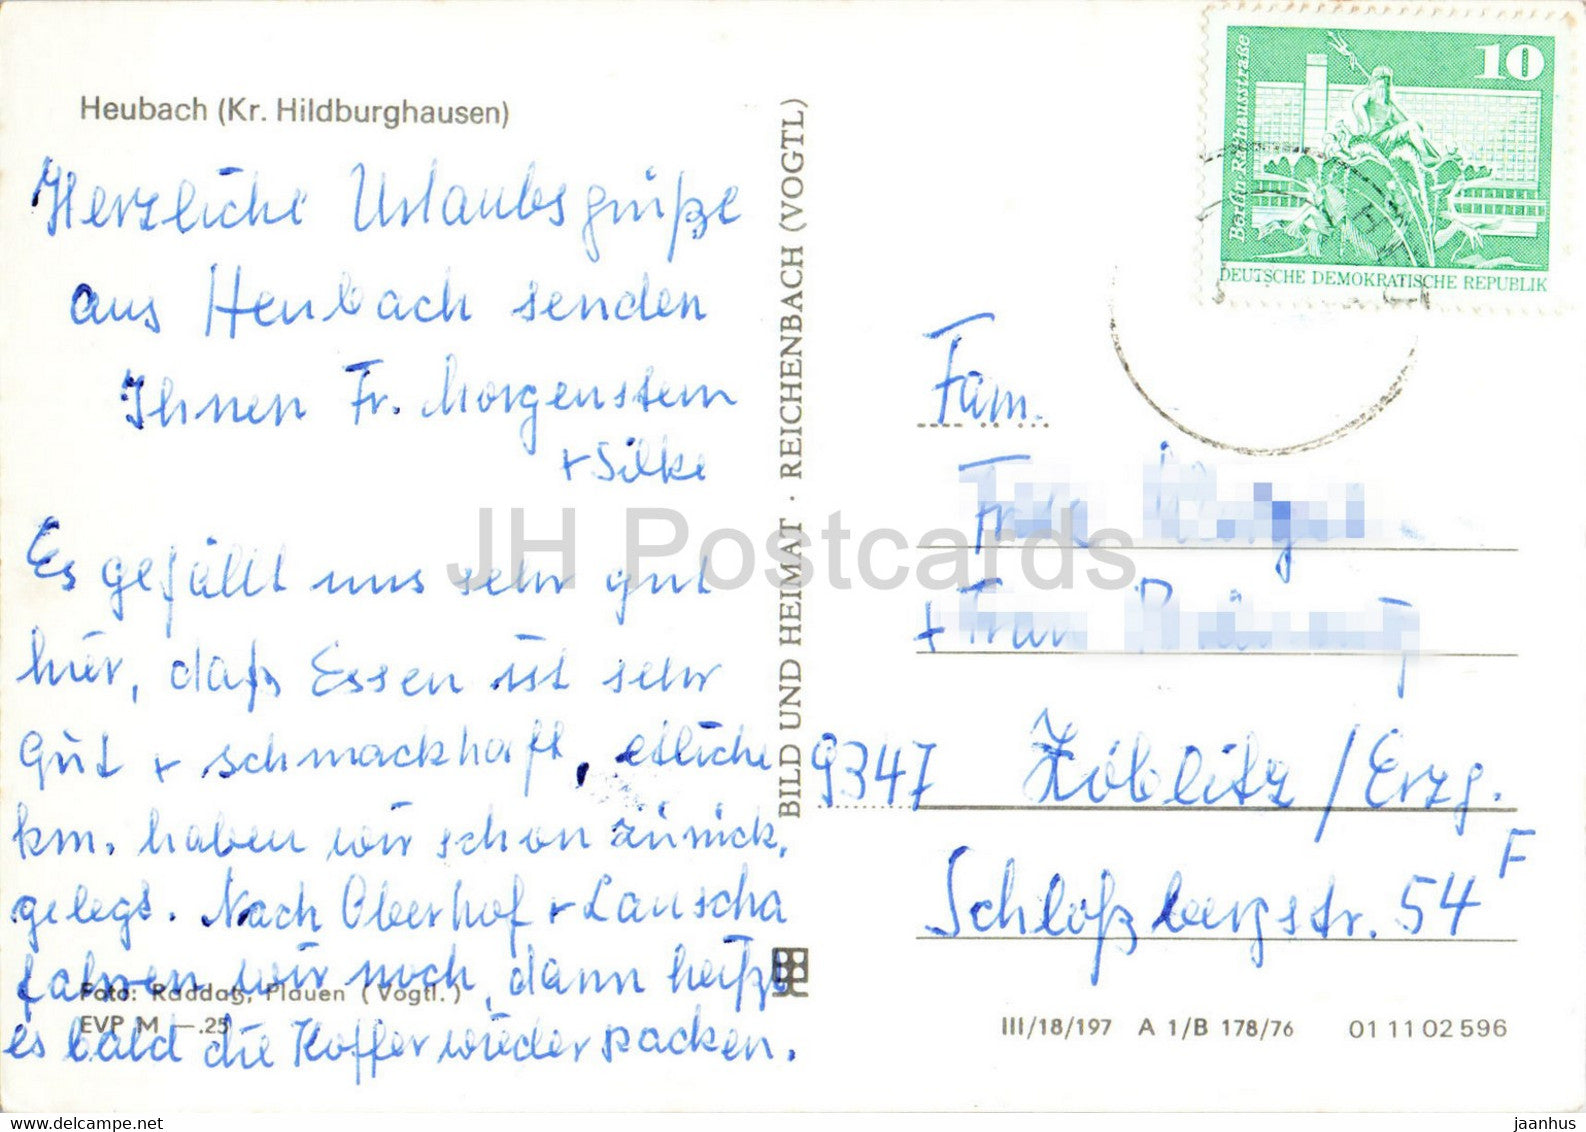 Heubach (Kr. Hildburghausen)
Herzliche Urlaubsgrüße
aus Heubach senden
Ihnen Fr. Morgenstern
+ Silke
Es gefällt uns sehr gut
hier, daß Essen ist sehr
gut + schmackhaft, etliche
km. haben wir schon zurück,
gelegt. Nach Oberhof + Lauscha
fahren wir noch, dann heißt
es bald die Koffer wieder packen.
Foto: Raddatz, Plauen (Vogtl.)
EVP M —.25
BILD UND HEIMAT · REICHENBACH (VOGTL)
10
Berlin-Rathausstraße
DEUTSCHE DEMOKRATISCHE REPUBLIK
Fam.
+
9347 Zöblitz / Erzg.
Schloßbergstr. 54 F
III/18/197 A 1/B 178/76 01 11 02 596
JH Postcards
www.delcampe.net
jaanhus